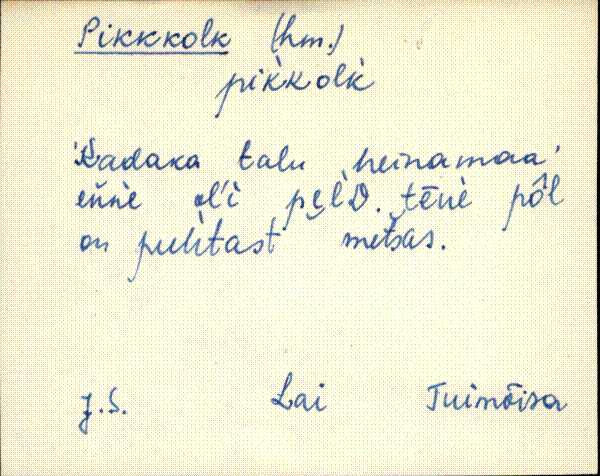 Pikkkolk (hm.)
pik̀kolk̀
'Kadaka talu heinamaa'
eǹnè ol'i pe̮l̀D. tēnè pōl
on puh̀tast metsas.
J.S. Lai Tuimõisa